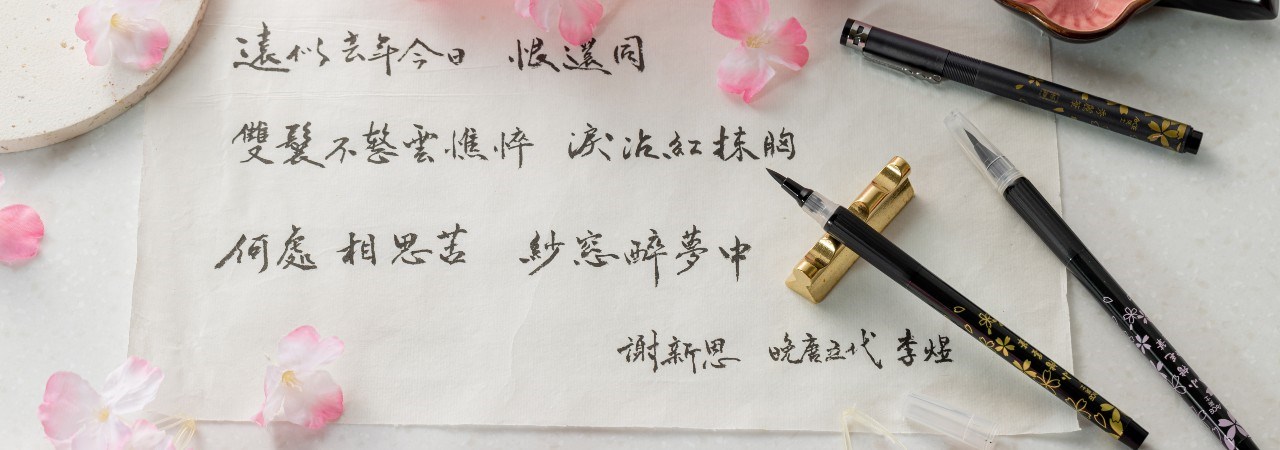 遠似去年今日 恨還同
雙鬟不整雲憔悴 淚沾紅抹胸
何處相思苦 紗窓醉夢中
謝新恩 晚唐五代 李煜